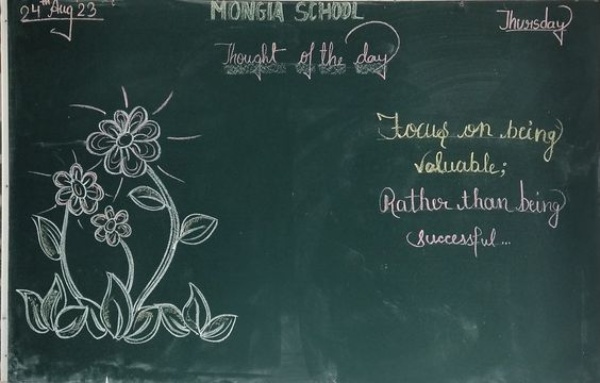 24th Aug 23
MONGIA SCHOOL
Thursday
Thought of the day
Focus on being
valuable;
Rather than being
successful...